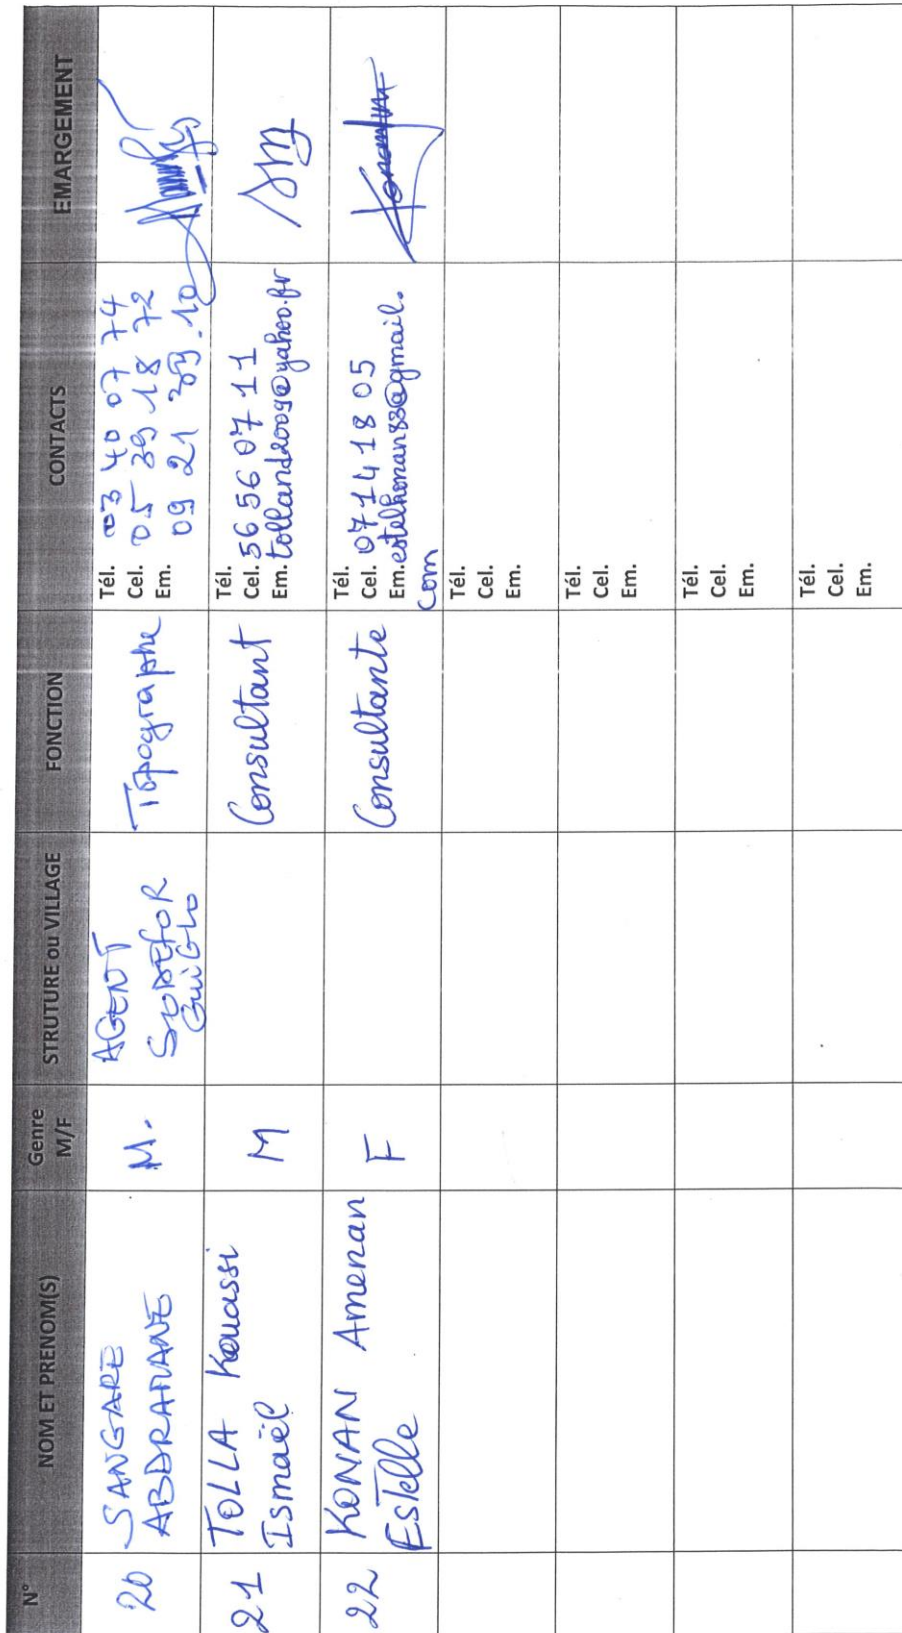 N° NOM ET PRENOM(S) Genre M/F STRUTURE ou VILLAGE FONCTION CONTACTS EMARGEMENT
20 SANGARE ABDRAMANE M. AGENT Guiglo Topographe
Tél. 03 40 07 74
Cel. 05 39 18 72
Em. 09 21 39.10
21 TOLLA Kouassi Ismaël M Consultant
Tél.
Cel. 56 56 07 11
Em. tolland2009@yahoo.fr
22 KONAN Amenan Estelle F Consultante
Tél.
Cel. 07 14 18 05
Em. estelkonan83@gmail.
com
Tél.
Cel.
Em.
Tél.
Cel.
Em.
Tél.
Cel.
Em.
Tél.
Cel.
Em.